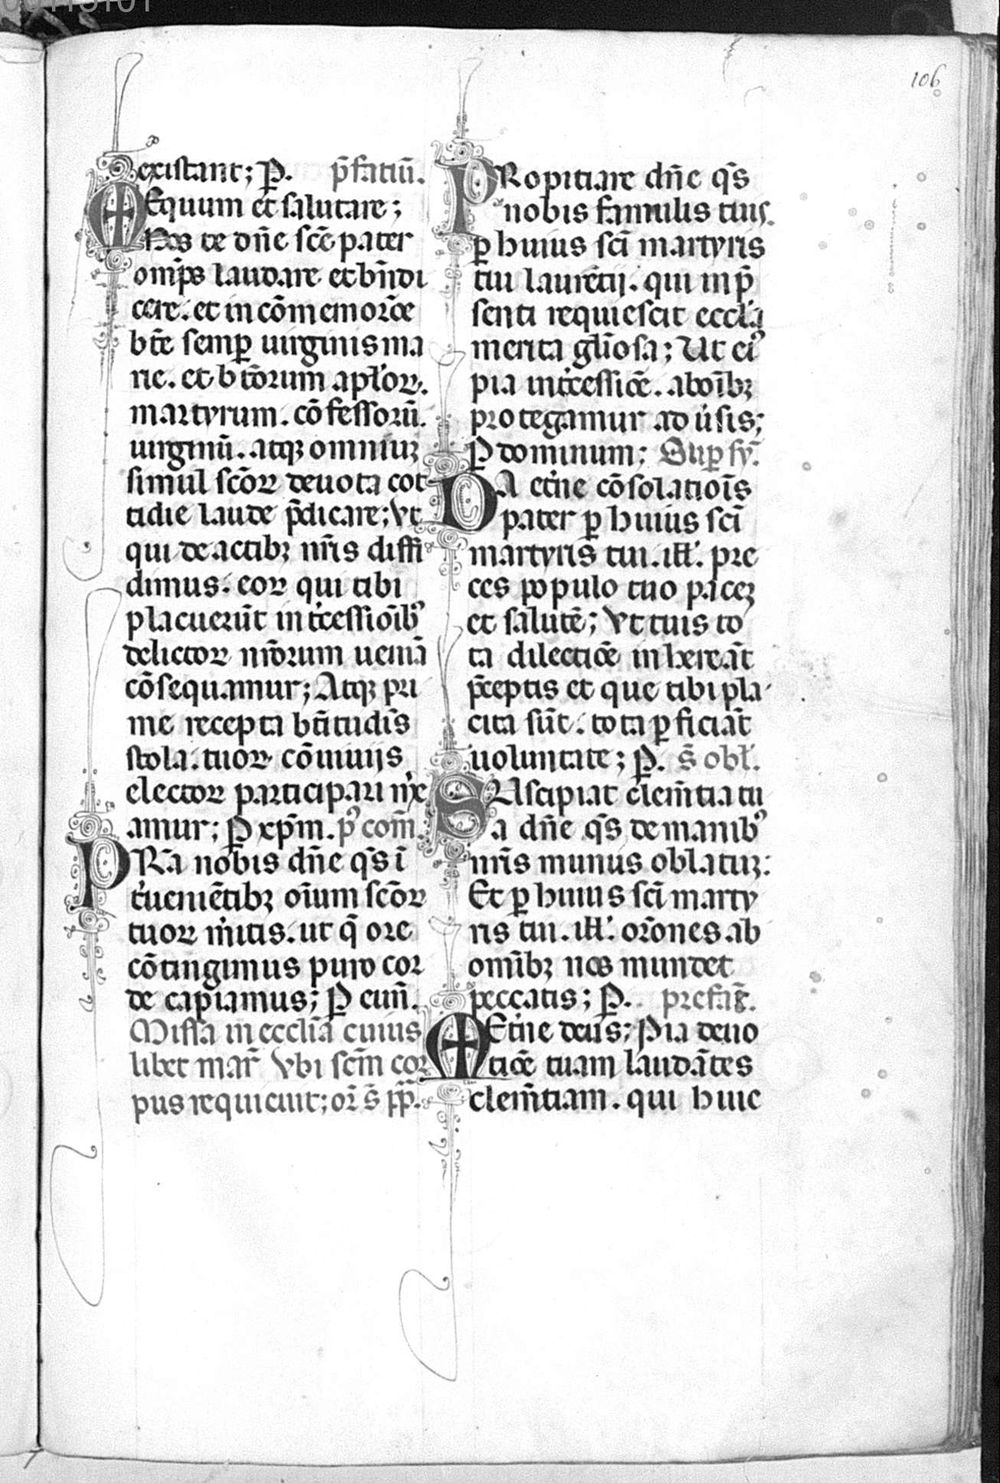 106
existant; P̱. p̄fatiū.
MEquum et salutare;
Nos te dn̄e sc̄e pater
om̄ps laudare et bn̄di
cere. et in cōmemorōe
bt̄e semꝑ uirginis ma
rie. et btōrum apl̄oꝝ.
martyrum. cōfessorū.
uirginū. atqꝫ omniuꝫ
simul sc̄oꝝ deuota cot
tidie laude p̄dicare; Vt
qui de actibꝫ nr̄is diffi
dimus. eoꝝ qui tibi
placuerūt int̄cessioībꝰ
delictoꝝ nr̄orum ueniā
cōsequamur; Atqꝫ pri
me recepta btītudīs
stola. tuoꝝ cōuiuijs
electoꝝ participari me
amur; P xp̄m. pꝰ com̄.
PRā nobis dn̄e qs̄ ī
t̄uenētibꝫ oīum sc̄oꝝ
tuoꝝ m̄itis. ut q̄ ore
cōtingimus puro cor
de capiamus; P eum̄.
Missa in eccl̄ia cuius
libet mar̄ Vbi sc̄m cor
pus requieuit; or̄ s̄ pp̄.
PRopitiare dn̄e qs̄
nobis famulis tuis
ꝑ huius sc̄i martyris
tui laurētij. qui in p̄
senti requiescit eccl̄a
merita gl̄iosa; Ut eiꝰ
pia int̄cessiōe. ab oībꝫ
protegamur adūsis;
P dominum; Suꝑ sy̅.
DA et̄ne cōsolatiōis
pater ꝑ huius sc̄i
martyris tui. ill̄. pre
ces populo tuo paceꝫ
et salutē; Vt tuis to
ta dilectiōe inhereāt
p̄ceptis et que tibi pla
cita sūt. tota ꝑficiāt
uoluntate; P̱. s̄ obl̄.
SAscipiat clem̄tia tu
a dn̄e qs̄ de manibꝰ
nr̄is munus oblatuꝫ:
Et ꝑ huius sc̄i marty
ris tui. ill̄. orōnes. ab
om̄ibꝫ nos mundet
peccatis; P̱. prefat̄.
MEt̄ne deus; Pia deuo
tiōe tuam laudātes
clem̄tiam. qui huic